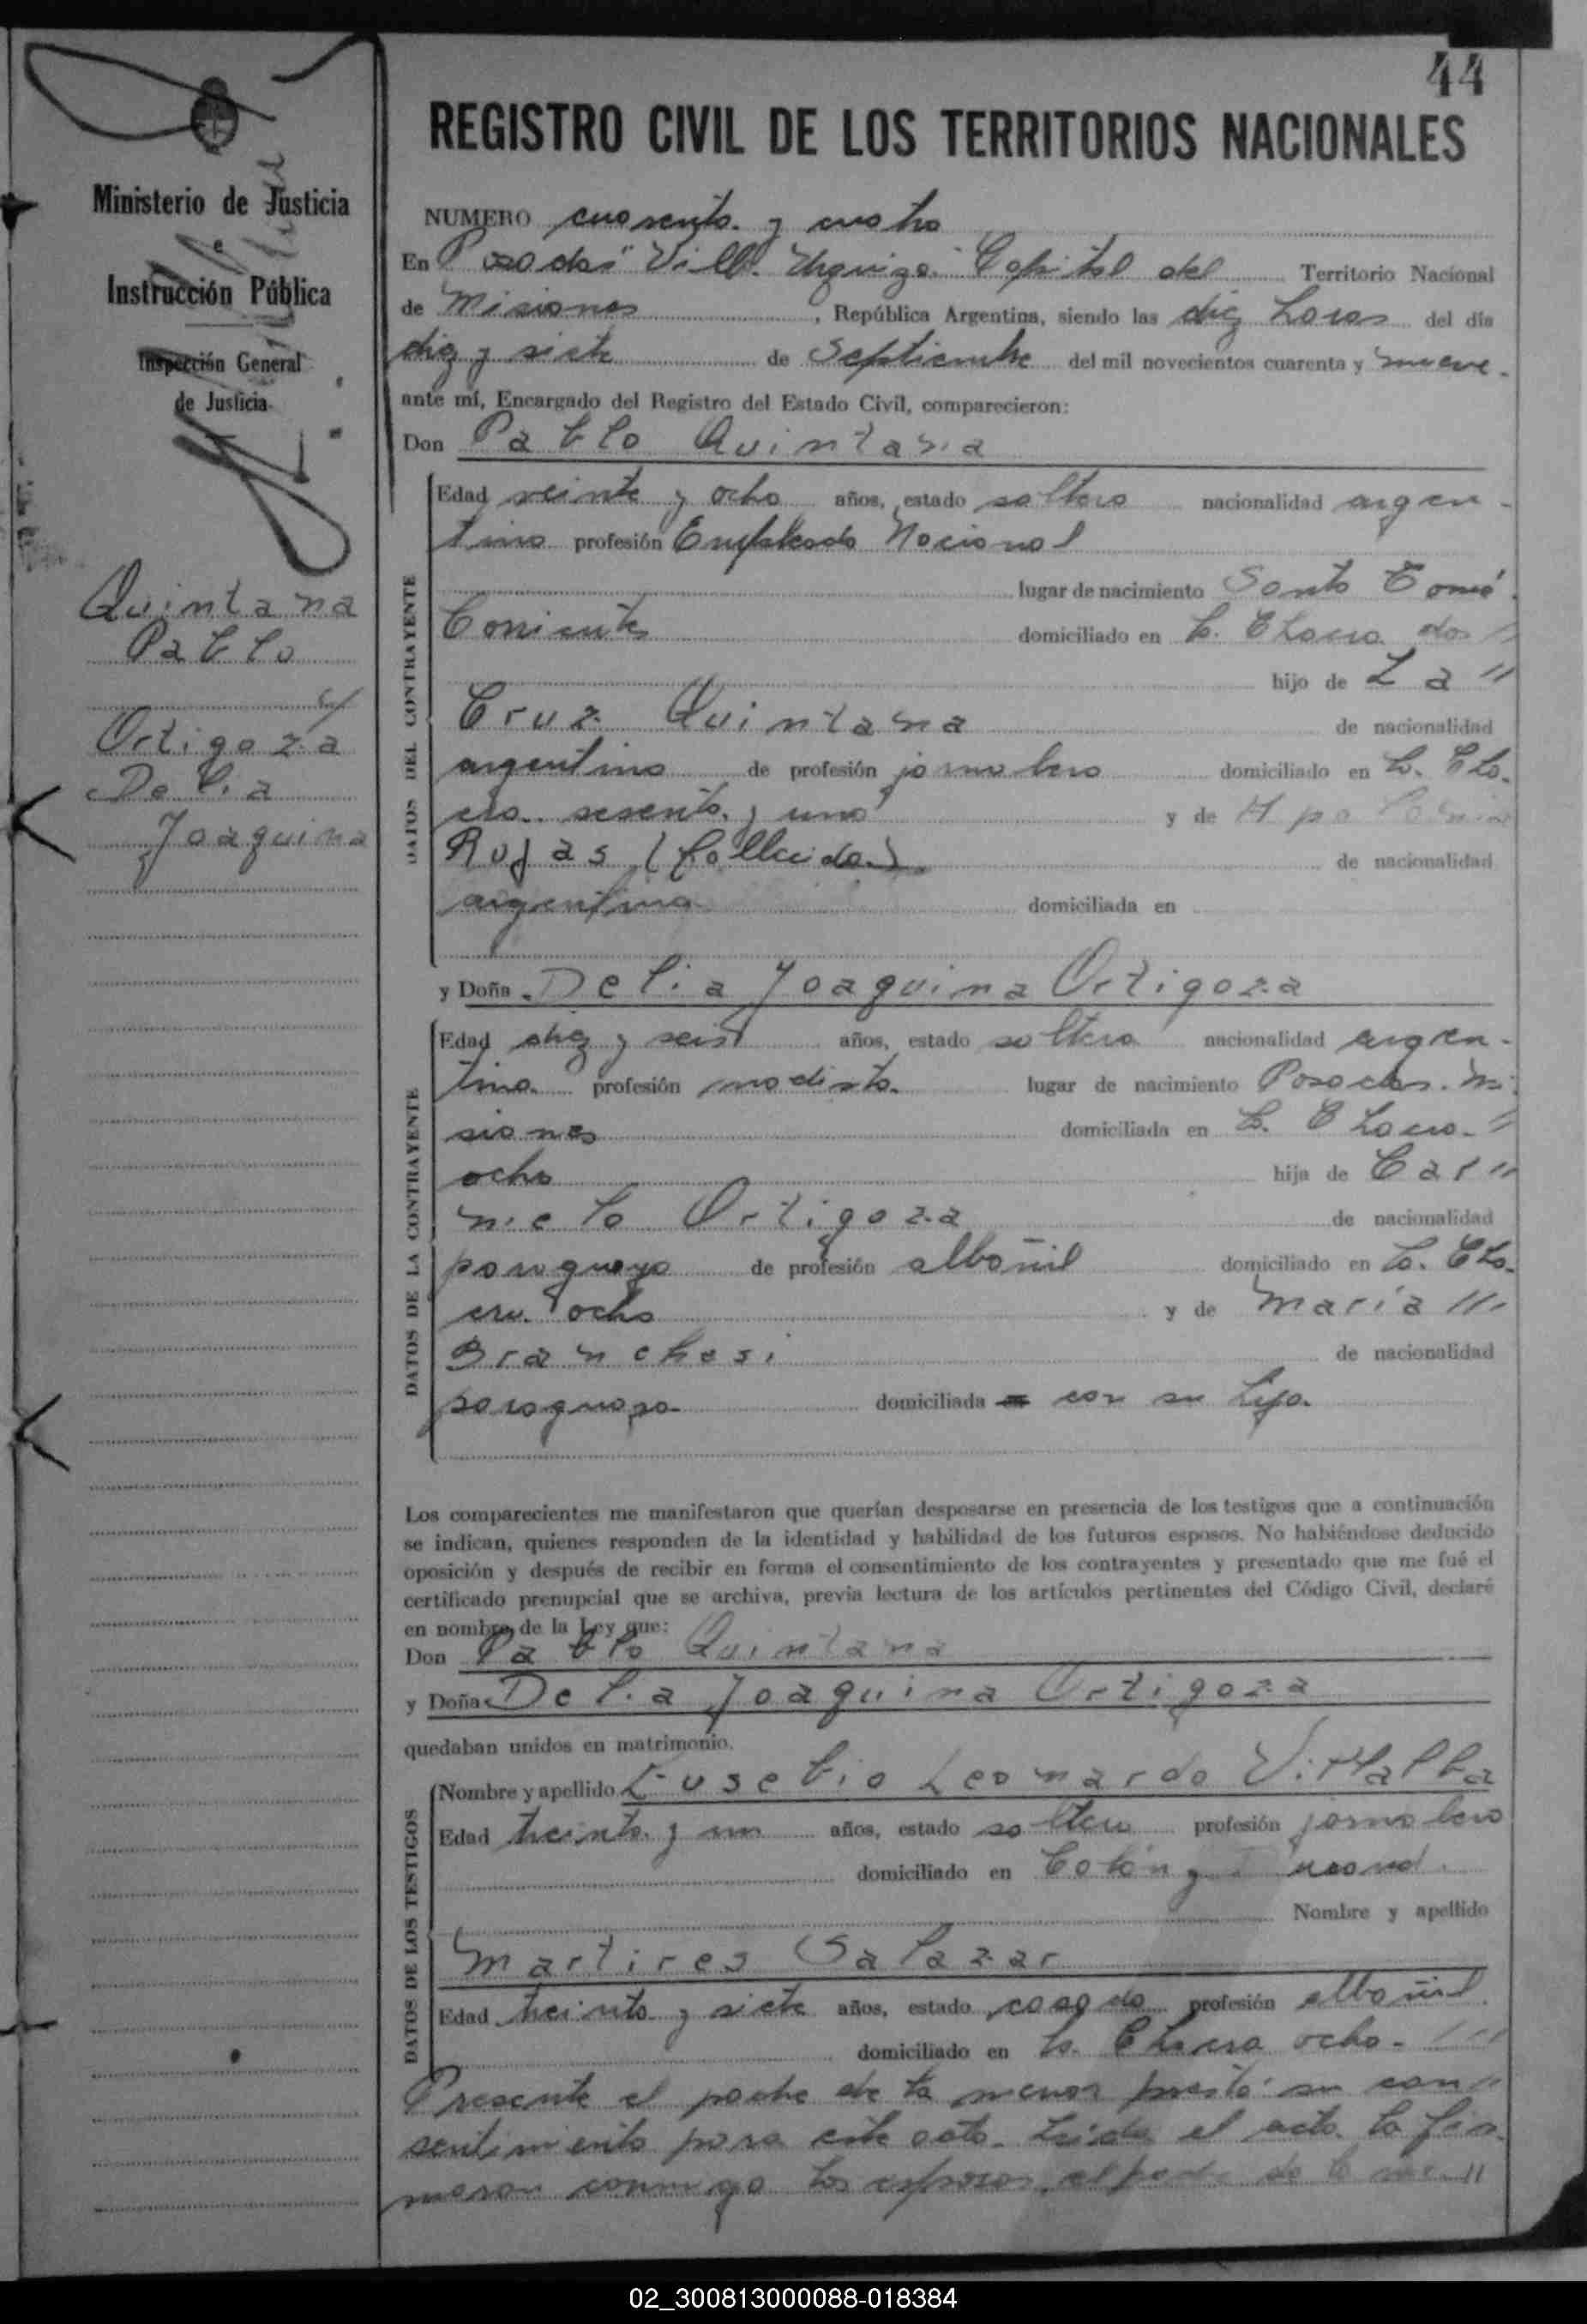 44
REGISTRO CIVIL DE LOS TERRITORIOS NACIONALES
Ministerio de Justicia
e
Instrucción Pública
Inspección General
de Justicia
Quintana
Pablo
y
Ortigoza
Delia
Joaquina
NUMERO cuarenta y cuatro
En Posadas "Villa Urquiza" Capital del Territorio Nacional
de Misiones, República Argentina, siendo las diez horas del día
diez y siete de Septiembre del mil novecientos cuarenta y nueve.
ante mí, Encargado del Registro del Estado Civil, comparecieron:
Don Pablo Quintana
DATOS DEL CONTRAYENTE
Edad veinte y ocho años, estado soltero nacionalidad argen-
tino profesión Empleado Nacional
lugar de nacimiento Santo Tomé.
Corrientes domiciliado en la Chacra dos "
hijo de La "
Cruz Quintana de nacionalidad
argentino de profesión jornalero domiciliado en la Cha-
cra sesenta y uno y de Apolonia
Rojas (fallecida) de nacionalidad
argentina domiciliada en
y Doña Delia Joaquina Ortigoza
DATOS DE LA CONTRAYENTE
Edad diez y seis años, estado soltera nacionalidad argen-
tina profesión modista lugar de nacimiento Posadas. Mi-
siones domiciliada en la Chacra "
ocho hija de Car "
melo Ortigoza de nacionalidad
paraguaya de profesión albañil domiciliado en la Cha-
cra ocho y de María "
Branchesi de nacionalidad
paraguaya domiciliada con su hija.
Los comparecientes me manifestaron que querían desposarse en presencia de los testigos que a continuación
se indican, quienes responden de la identidad y habilidad de los futuros esposos. No habiéndose deducido
oposición y después de recibir en forma el consentimiento de los contrayentes y presentado que me fué el
certificado prenupcial que se archiva, previa lectura de los artículos pertinentes del Código Civil, declaré
en nombre de la Ley que:
Don Pablo Quintana
y Doña Delia Joaquina Ortigoza
quedaban unidos en matrimonio.
DATOS DE LOS TESTIGOS
Nombre y apellido Eusebio Leonardo Villalba
Edad treinta y un años, estado soltero profesión jornalero
domiciliado en Colón y
Nombre y apellido
Martires Salazar
Edad treinta y siete años, estado casado profesión albañil
domiciliado en la Chacra ocho.
Presente el padre de la menor prestó su con "
sentimiento para este acto. Leída el acta la fir-
maron conmigo los esposos, el padre de la me "
02_300813000088-018384